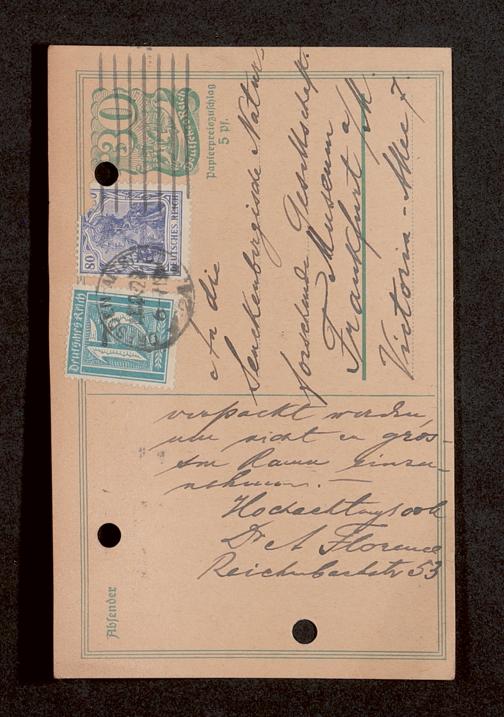 30
Deutsches Reich
Papierpreiszuschlag
5 Pf.
80
DEUTSCHES REICH
Deutsches Reich
10
An die
Senckenbergische Natur-
forschende Gesellschaft
Museum
Frankfurt a/M.
Victoria-Allee 7.
verpackt werden,
um nicht zu gros-
sen Raum einzu-
nehmen. —
Hochachtungsvoll
Dr A Florence
Reichenbachstr 53
Absender